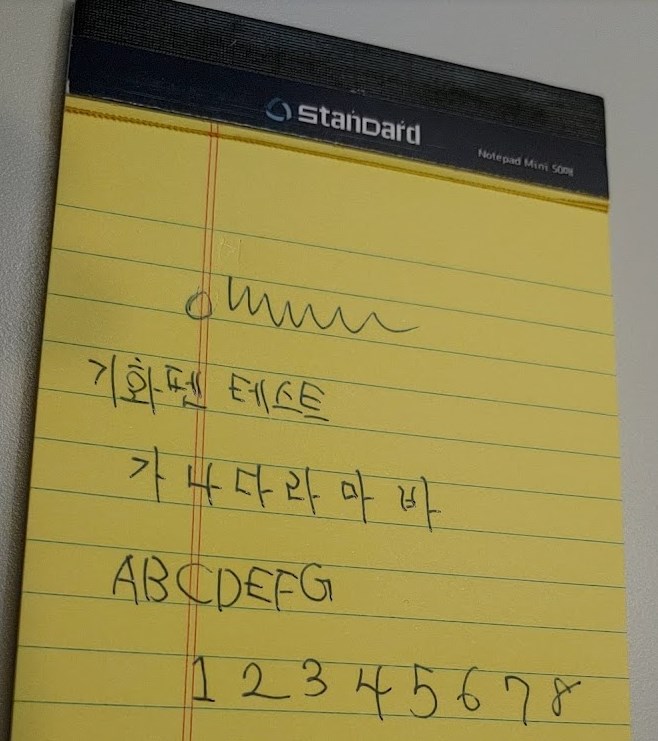 standard
Notepad Mini 50매
기화펜 테스트
가 나 다 라 마 바
ABCDEFG
1 2 3 4 5 6 7 8